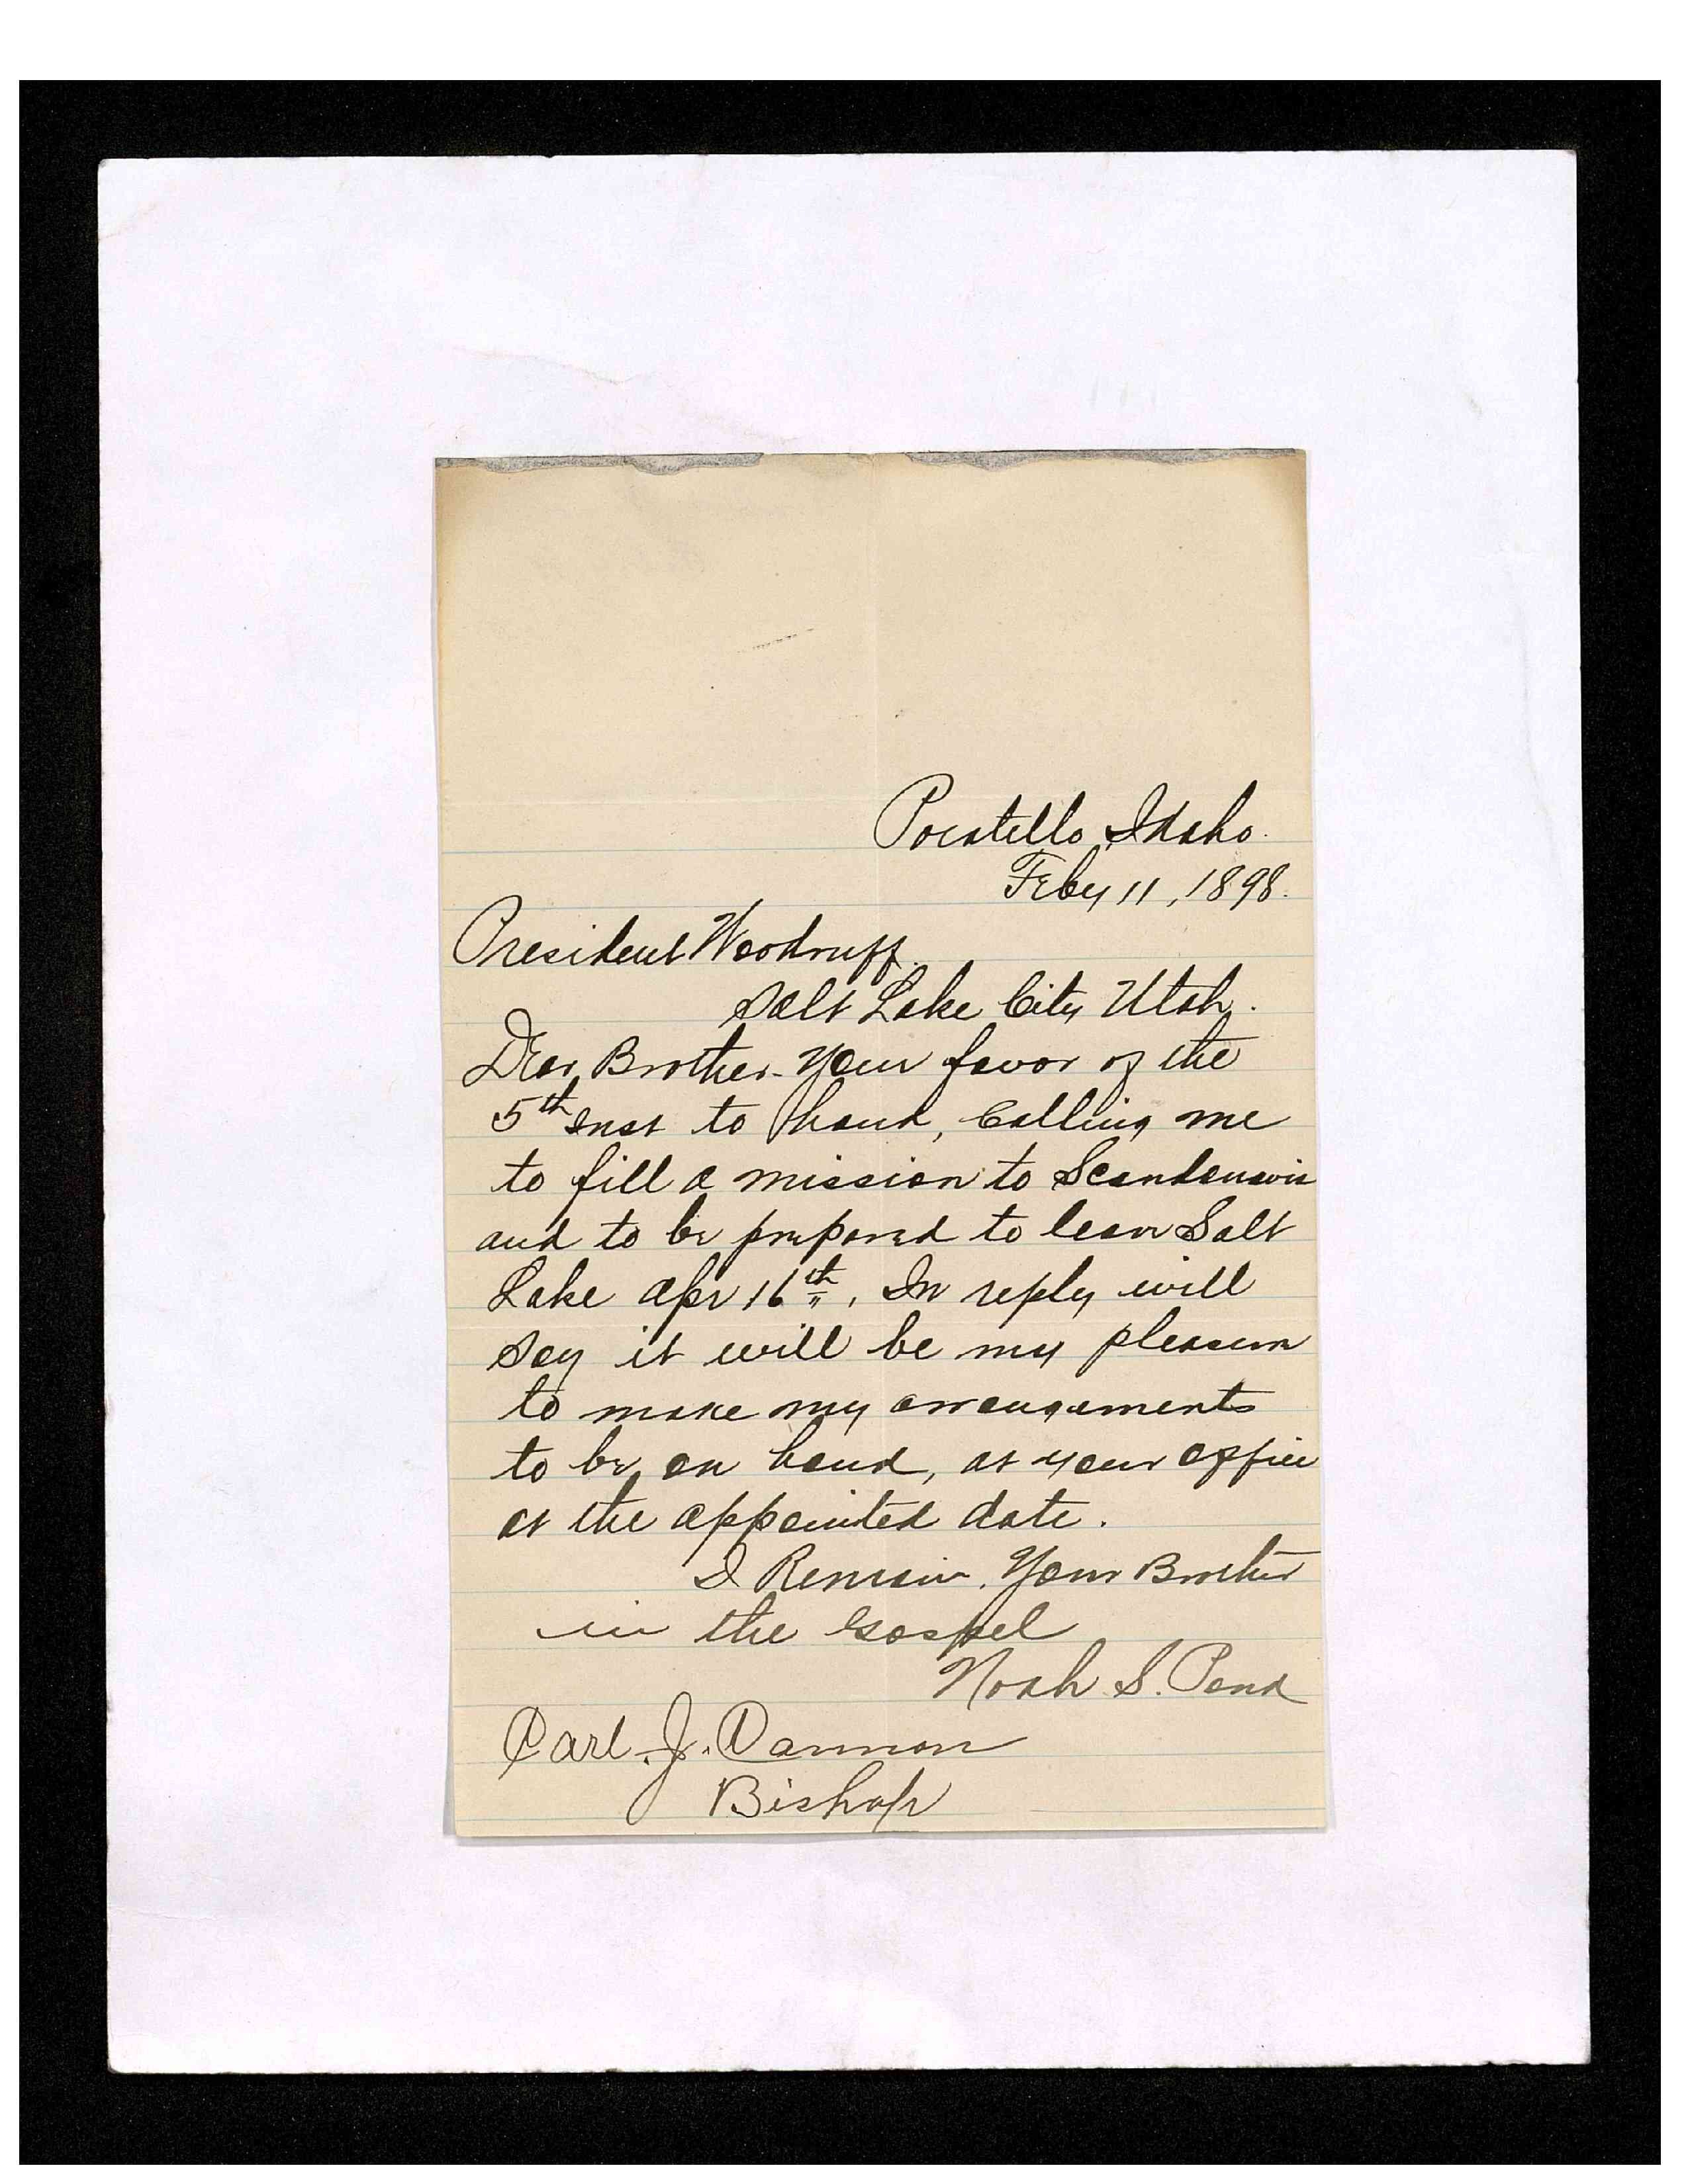 Pocatello Idaho.
Feby 11, 1898.
President Woodruff.
Salt Lake City Utah.
Dear Brother. Your favor of the
5th Inst to hand, Calling me
to fill a mission to Scandanavia
and to be prepared to leave Salt
Lake Apr 16th. In reply will
say it will be my pleasure
to make my arrangements
to be on hand, at your office
at the appointed date.
I Remain. Your Brother
in the Gospel
Noah S. Pond
Carl. J. Cannon
Bishop